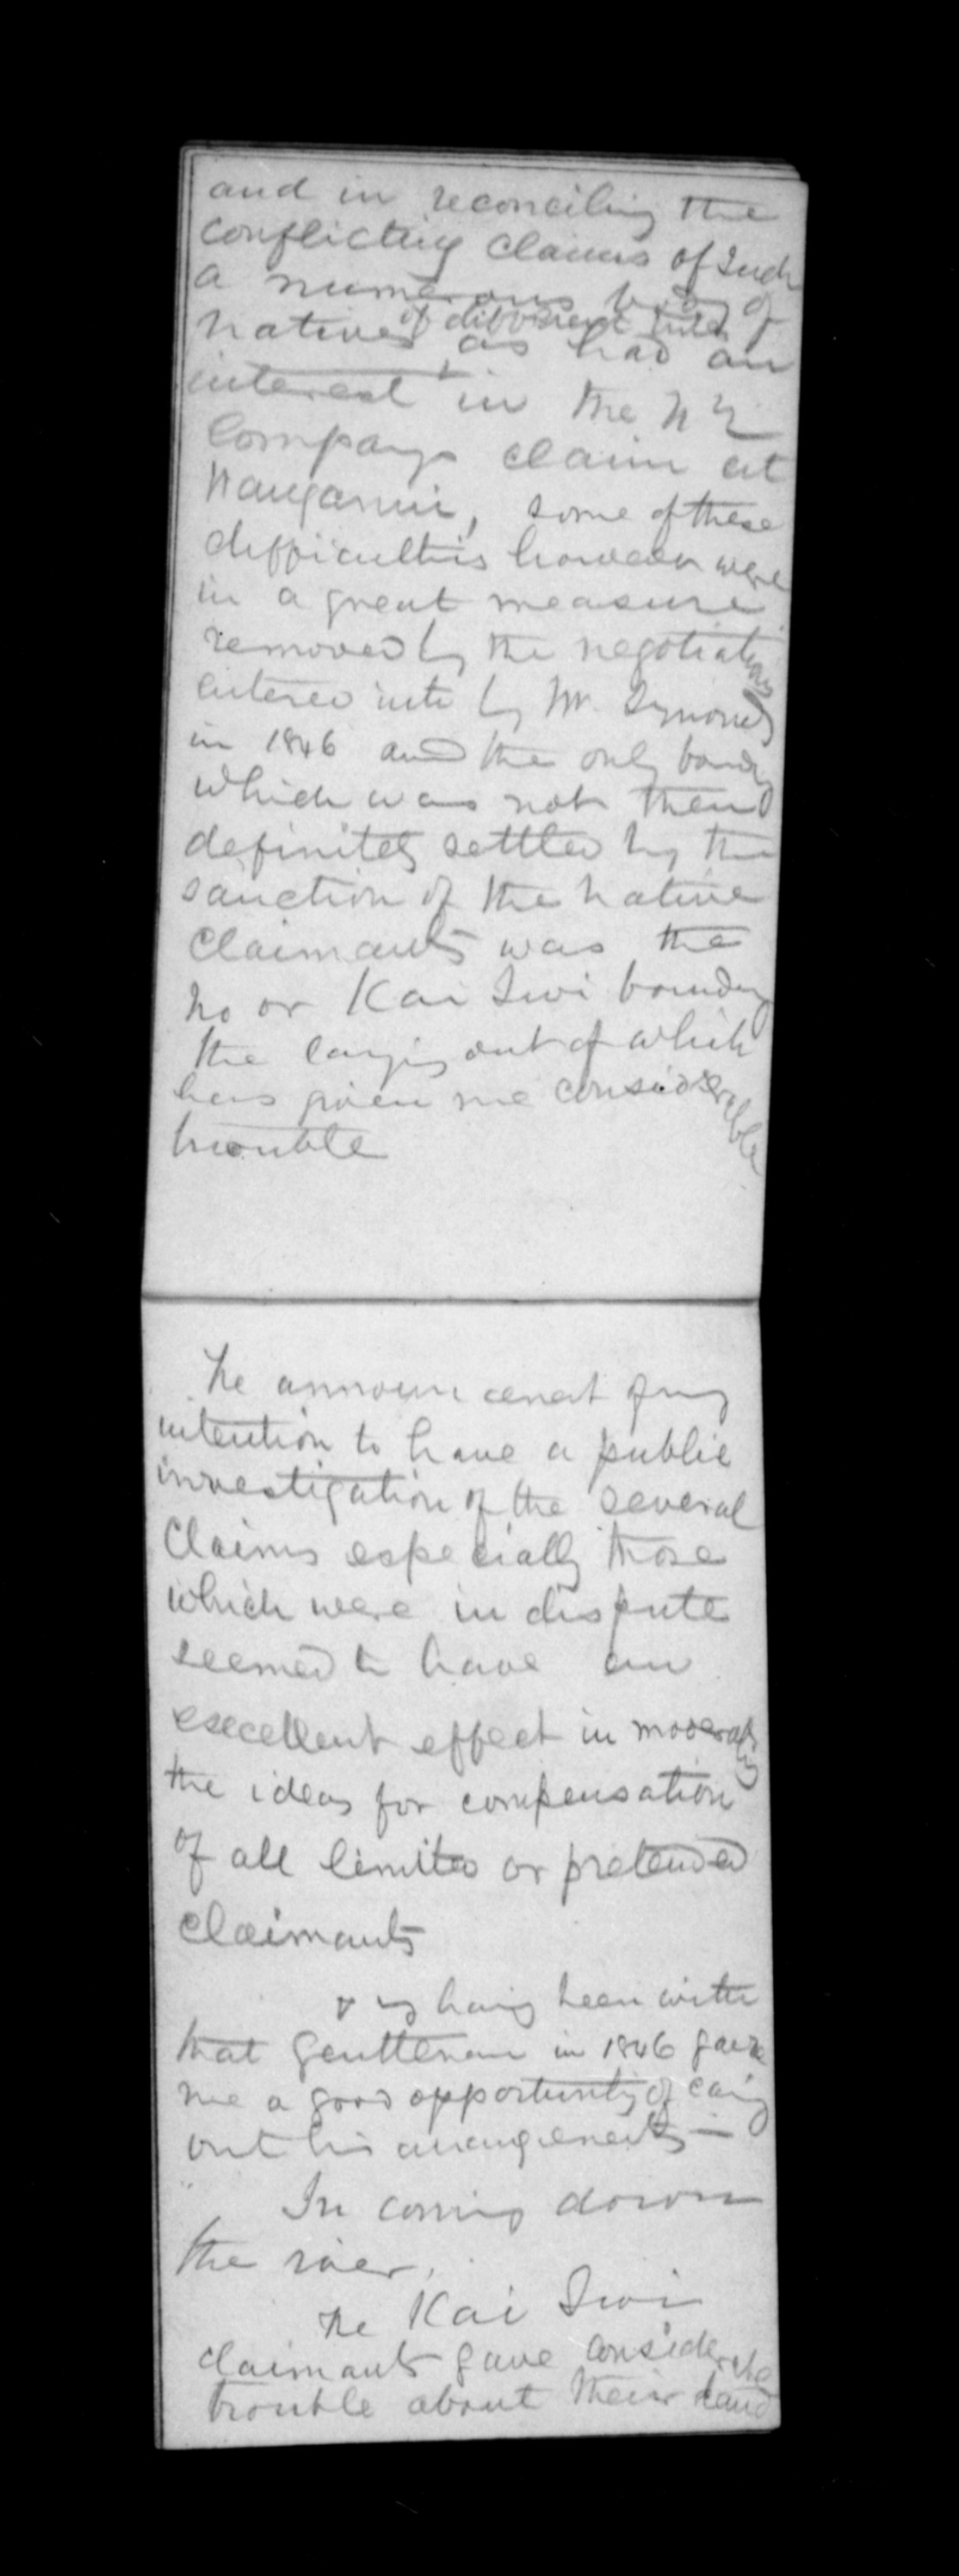 and in reconciling the
conflicting claims of such
a numerous body of
of different tribes
natives as had an
interest in the N Z
Company's claim at
Wanganui, some of these
difficulties however were
in a great measure
removed by the negotiations
entered into by Mr. Symonds
in 1846 and the only boundy
which was not then
definitely settled by the
sanction of the native
claimants was the
No or Kai Iwi boundy
the laying out of which
has given me considerable
trouble
The announcement of my
intention to have a public
investigation of the several
Claims especially those
which were in dispute
seemed to have an
excellent effect in moderating
the ideas for compensation
of all limited or pretended
claimants
& my having been with
that Gentleman in 1846 gave
me a good opportunity of caing
out his arrangements —
In coming down
the river,
The Kai Iwi
claimants gave considerable
trouble about their land